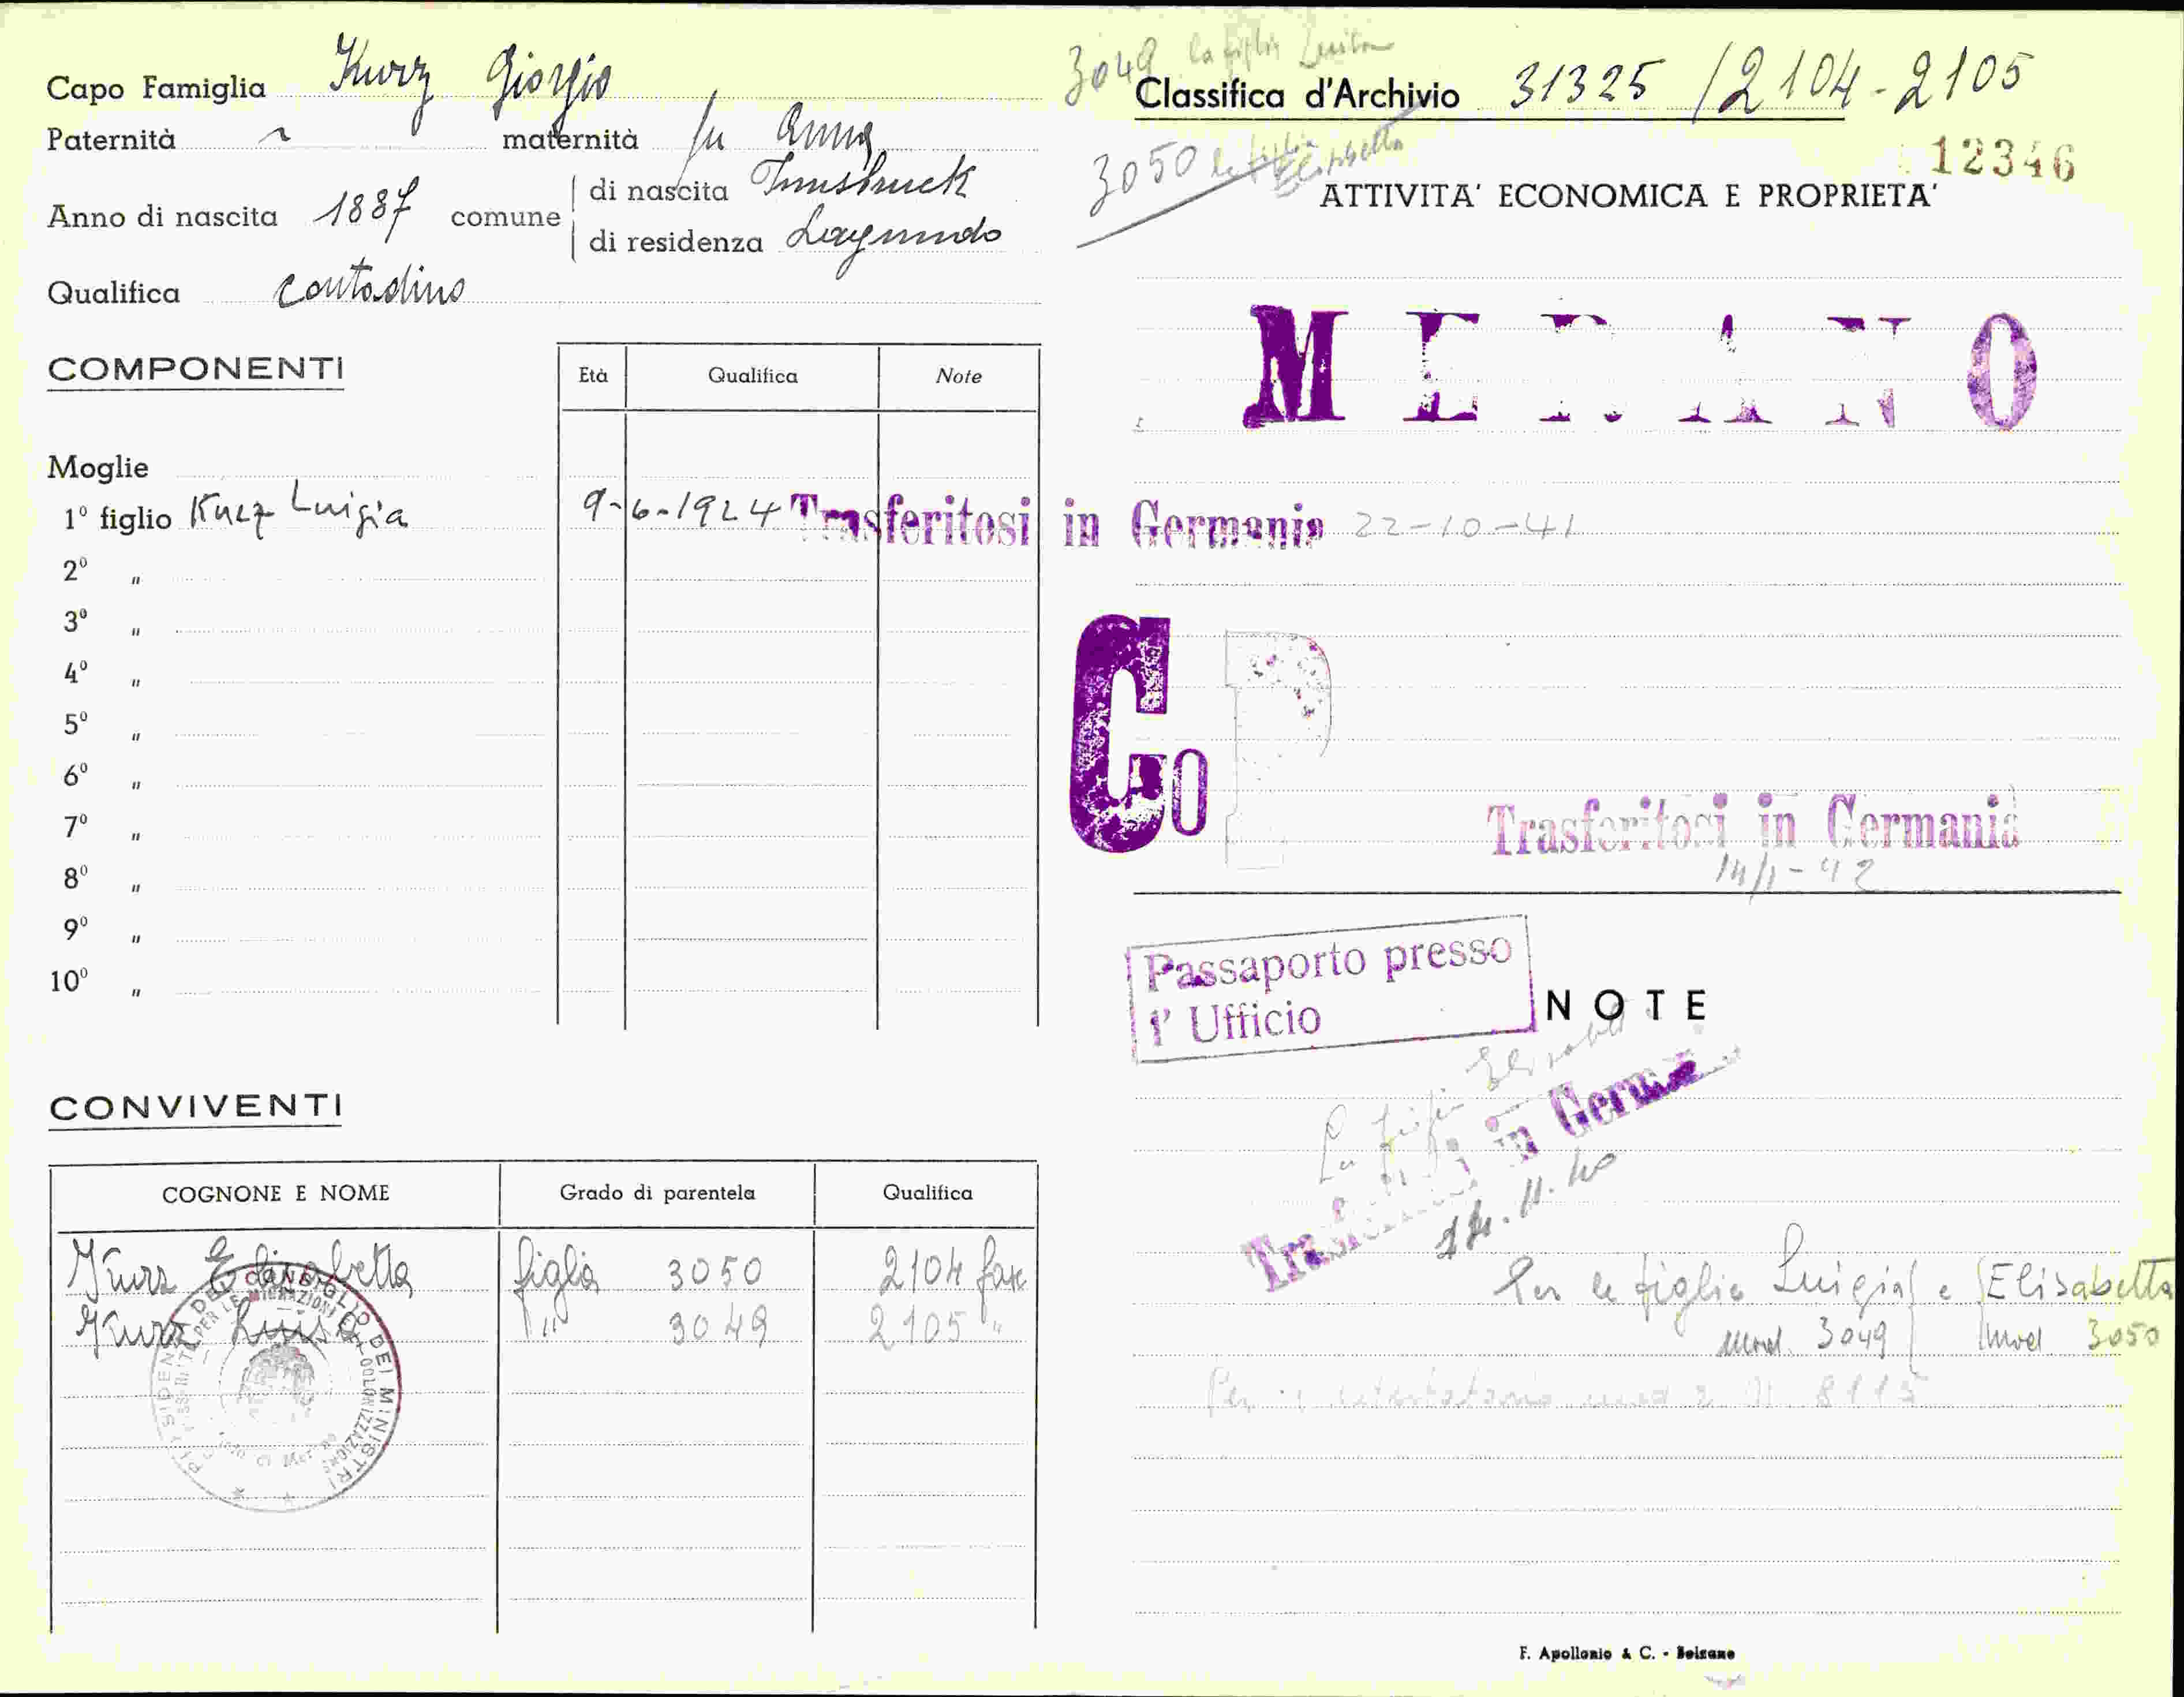 Capo Famiglia Kurz Giorgio
Paternità maternità fu Anna
Anno di nascita 1887 comune
di nascita Innsbruck
di residenza Lagundo
Qualifica contadino
COMPONENTI Età Qualifica Note
Moglie
1º figlio Kurz Luigia 9-6-1924 Trasferitosi in Germania 22-10-41
2º "
3º "
4º "
5º "
6º "
7º "
8º "
9º "
10º "
CONVIVENTI
COGNONE E NOME Grado di parentela Qualifica
Kurz Elisabetta figlia 3050 2104 fasc
Kurz Luisa " 3049 2105 "
3049 la figlia
Classifica d'Archivio 31325 / 2104-2105
3050 la figlia Elisabetta
12346
ATTIVITA' ECONOMICA E PROPRIETA'
MERANO
Co P
Trasferitosi in Germania
14/1-42
Passaporto presso
l' Ufficio
NOTE
La figlia
Trasferitosi in Germania
11.40
Per le figlie Luigia e Elisabetta
mod. 3049 mod 3050
8115
PRESIDENZA DEL CONSIGLIO DEI MINISTRI
PER LE MIGRAZIONI
F. Apollonio & C. - Bolzano